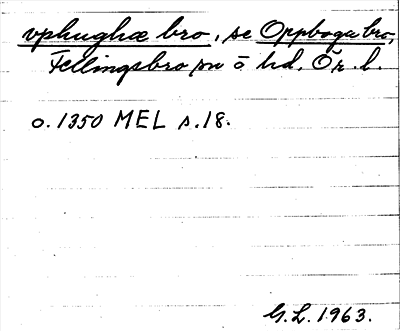 vphughæ bro, se Oppboga bro,
Fellingsbro sn ö hd, Ör. l.
o. 1350 MEL s. 18.
G. L. 1963.